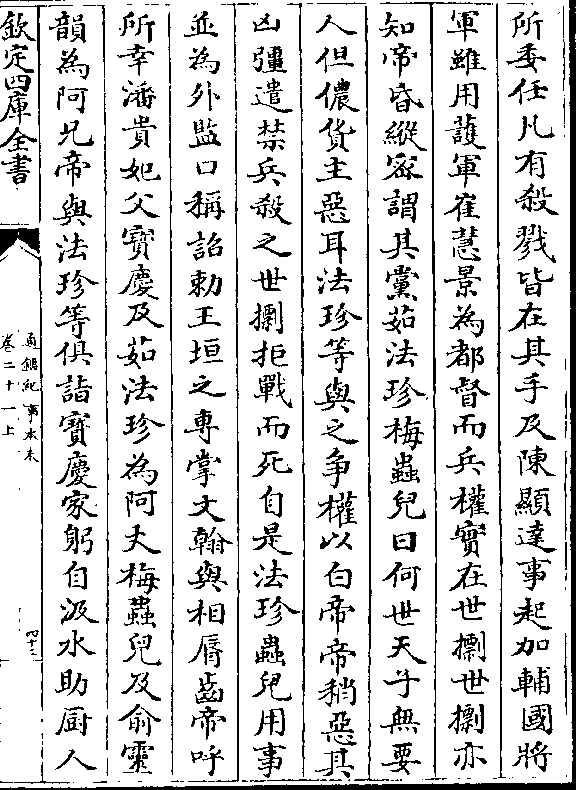 所委任凡有殺戮皆在其手及陳顯達事起加輔國將
軍雖用䕶軍崔慧景為都督而兵權實在世摽世摽亦
知帝昏縱密謂其黨茹法珍梅蟲兒曰何世天子無要
人但儂貨主惡耳法珍等與之争權以白帝帝稍惡其
凶彊遣禁兵殺之世摽拒戰而死自是法珍蟲兒用事
並為外監口稱詔勅王垣之專掌文翰與相脣齒帝呼
所幸潘貴妃父寶慶及茹法珍為阿丈梅蟲兒及俞靈
韻為阿兄帝與法珍等俱詣寶慶家躬自汲水助厨人
欽定四庫全書
通鑑紀事本末
卷二十一上
四十三